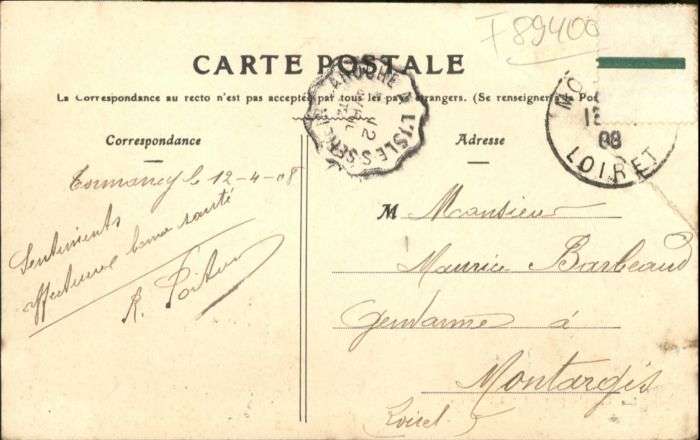 F 89400
CARTE POSTALE
La Correspondance au recto n'est pas acceptée par tous les pays étrangers. (Se renseigner à la Pos
Correspondance
Adresse
LAROCHE A L'ISLE S. SEREIN
MO
LOIRET
08
Tormancy le 12-4-08
Sentiments
affectueux bonne santé
M Monsieur
Maurice Barbeaud
Gendarme à
Montargis
Loiret